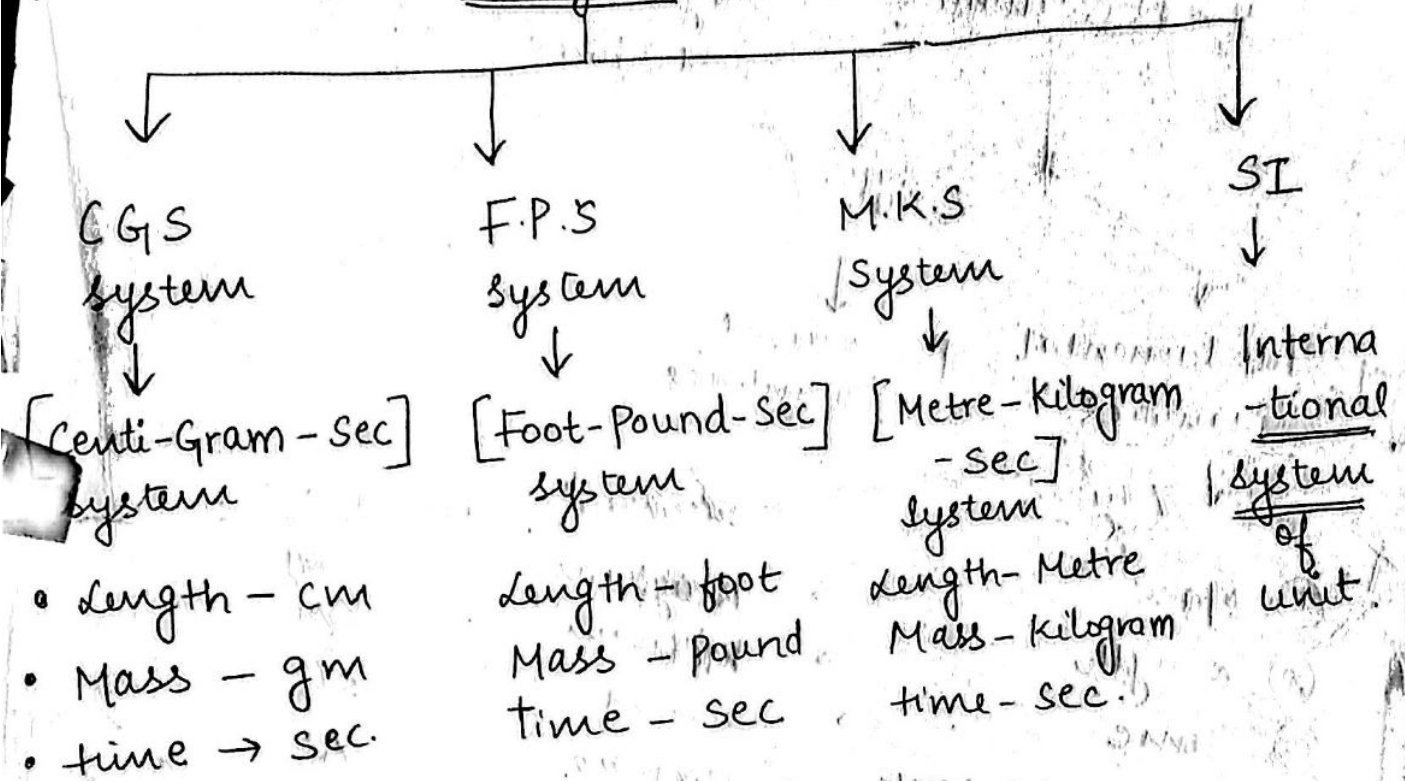 CGS
system
[Centi-Gram-Sec]
system
• Length - cm
• Mass - gm
• time → sec.
F.P.S
system
[Foot-Pound-Sec]
system
Length - foot
Mass - Pound
time - sec
M.K.S
System
[Metre-Kilogram
-Sec]
system
Length- Metre
Mass - Kilogram
time - sec.
SI
Interna
-tional
system
of
unit.